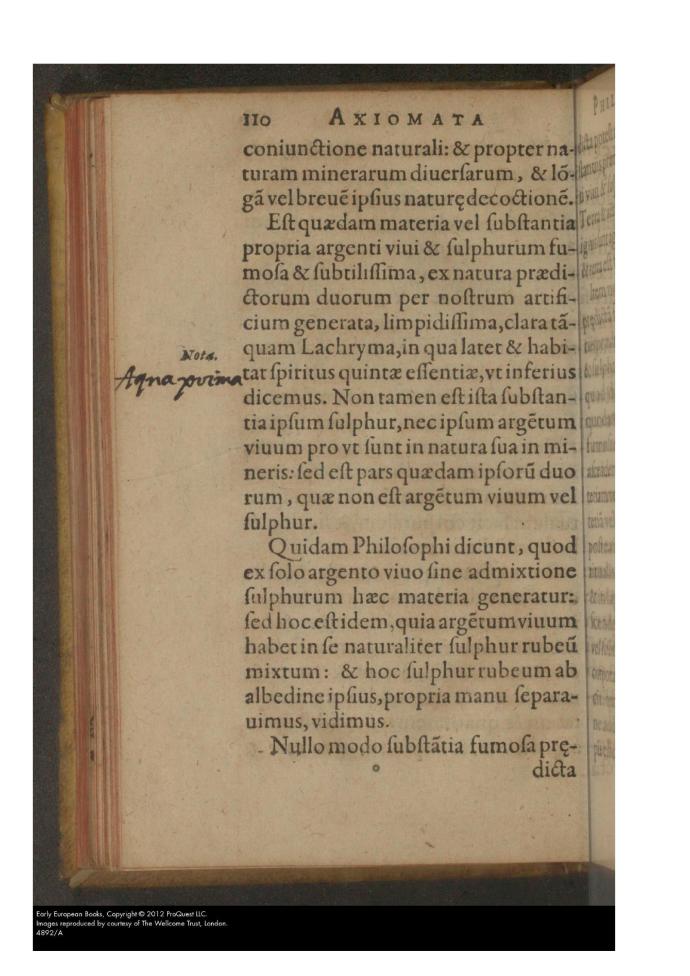 110 AXIOMATA
coniunctione naturali: & propter na-
turam minerarum diuerſarum, & lõ-
gã vel breuẽ ipſius naturę decoctionẽ.
Eſt quædam materia vel ſubſtantia
propria argenti viui & ſulphurum fu-
moſa & ſubtiliſſima, ex natura prædi-
ctorum duorum per noſtrum artifi-
cium generata, limpidiſſima, clara tã-
quam Lachryma, in qua latet & habi-
tat ſpiritus quintæ eſſentiæ, vt inferius
dicemus. Non tamen eſt iſta ſubſtan-
tia ipſum ſulphur, nec ipſum argẽtum
viuum pro vt ſunt in natura ſua in mi-
neris: ſed eſt pars quædam ipſorũ duo
rum, quæ non eſt argẽtum viuum vel
ſulphur.
Quidam Philoſophi dicunt, quod
ex ſolo argento viuo ſine admixtione
ſulphurum hæc materia generatur:
ſed hoc eſt idem, quia argẽtum viuum
habet in ſe naturaliter ſulphur rubeũ
mixtum: & hoc ſulphur rubeum ab
albedine ipſius, propria manu ſepara-
uimus, vidimus.
Nullo modo ſubſtãtia fumoſa prę-
dicta
Nota.
Aqua prima
PHIL
Early European Books, Copyright © 2012 ProQuest LLC.
Images reproduced by courtesy of The Wellcome Trust, London.
4892/A